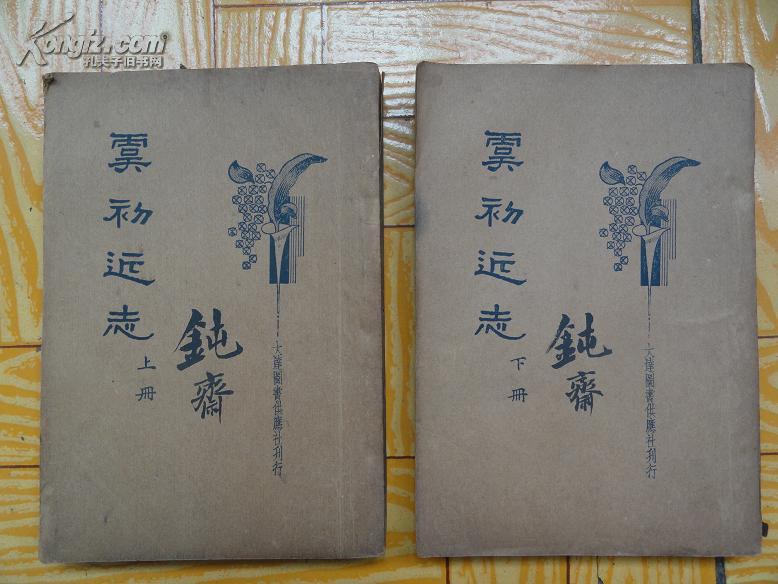 Kongfz.com
孔夫子旧书网
虞初近志
上册
鈍齋
大達圖書供應社刋行
虞初近志
下册
鈍齋
大達圖書供應社刋行